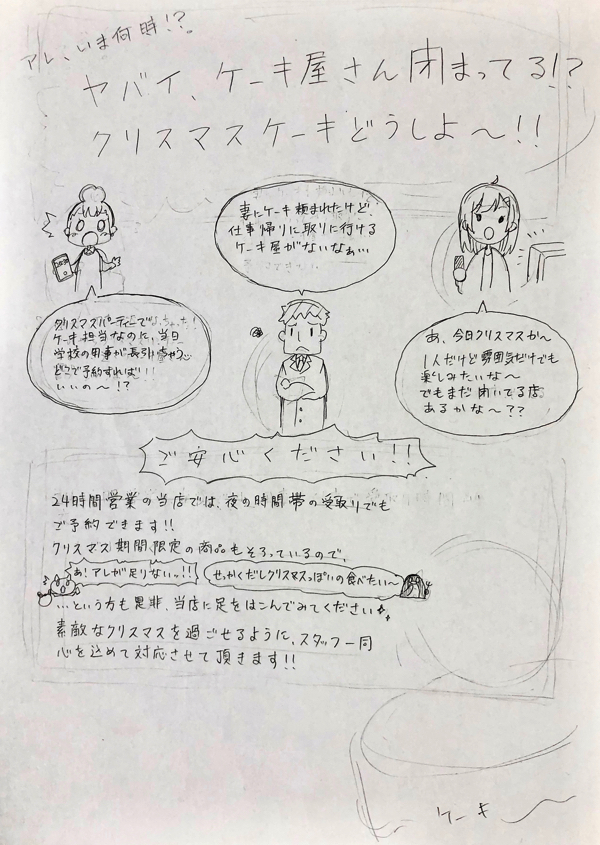 アレ、いま何時!?
ヤバイ、ケーキ屋さん閉まってる!?
クリスマスケーキどうしよ〜!!
妻にケーキ頼まれたけど、
仕事帰りに取りに行ける
ケーキ屋がないなぁ…
クリスマスパーティーで
ケーキ担当なのに、当日
学校の用事が長引いちゃう…
どこで予約すれば
いいの〜!?
あ、今日クリスマスか〜
1人だけど雰囲気だけでも
楽しみたいな〜
でもまだ開いてる店
あるかな〜??
ご安心ください!!
24時間営業の当店では、夜の時間帯の受取りでも
ご予約できます!!
クリスマス期間限定の商品もそろっているので、
あ!アレが足りないッ!!
せっかくだしクリスマスっぽいの食べたい〜
…という方も是非、当店に足をはこんでみてください
素敵なクリスマスを過ごせるように、スタッフ一同
心を込めて対応させて頂きます!!
ケーキ